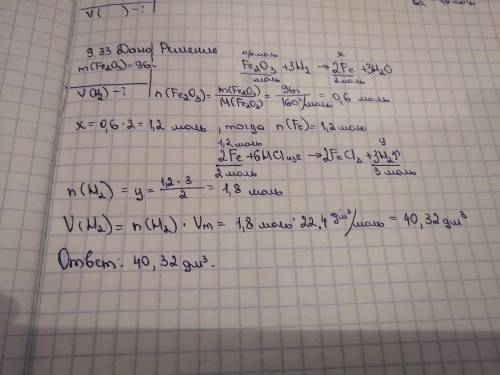 V( )-?
9.33 Дано Решение
0,6 моль x
m(Fe₂O₃)=96г Fe₂O₃+3H₂→2Fe+3H₂O
моль 2моль
V(H₂)-? n(Fe₂O₃)=m(Fe₂O₃)/M(Fe₂O₃)=96г/160г/моль=0,6 моль
x=0,6·2=1,2 моль, тогда n(Fe)=1,2моль
1,2моль y
2Fe+6HCl изб→2FeCl₃+3H₂↑
2 моль 3 моль
n(H₂)=y=1,2·3/2=1,8 моль
V(H₂)=n(H₂)·Vm=1,8моль·22,4дм³/моль=40,32дм³
Ответ: 40,32дм³.